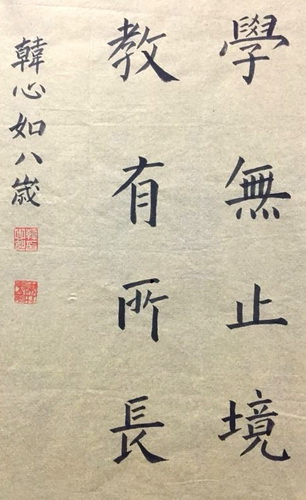 學無止境
教有所長
韓心如八歲